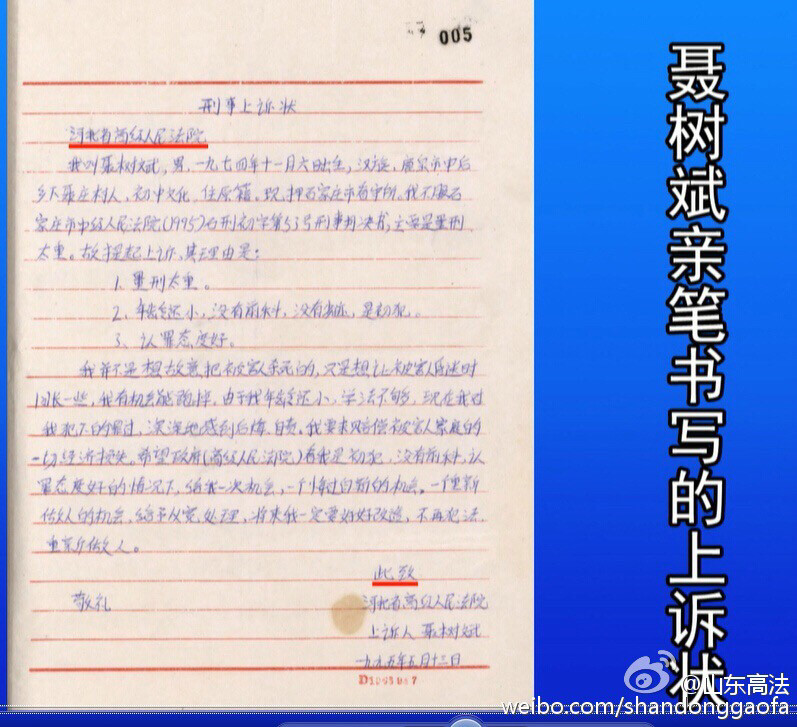 005
刑事上诉状
河北省高级人民法院
我叫聂树斌,男,一九七四年十一月六日出生,汉族,鹿泉市申后
乡下聂庄村人,初中文化,住原籍。现押石家庄市看守所。我不服石
家庄市中级人民法院(1995)石刑初字第53号刑事判决书,主要是量刑
太重。故提起上诉,其理由是:
1. 量刑太重。
2. 年龄还小,没有前科,没有劣迹,是初犯。
3. 认罪态度好。
我并不是想故意把被害人杀死的,只是想让被害人昏迷时
间长一些,我有机会能跑掉,由于我年龄还小,学法不够,现在我对
我犯下的罪过,深深地感到后悔、自责。我要求赔偿被害人家庭的
一切经济损失。希望政府(高级人民法院)看我是初犯,没有前科,认
罪态度好的情况下,给我一次机会,一个悔过自新的机会,一个重新
做人的机会,给予从宽处理,将来我一定要好好改造,不再犯法,
重新做人。
此致
敬礼
河北省高级人民法院
上诉人 聂树斌
一九九五年五月十三日
聂树斌亲笔书写的上诉状
@山东高法
weibo.com/shandonggaofa